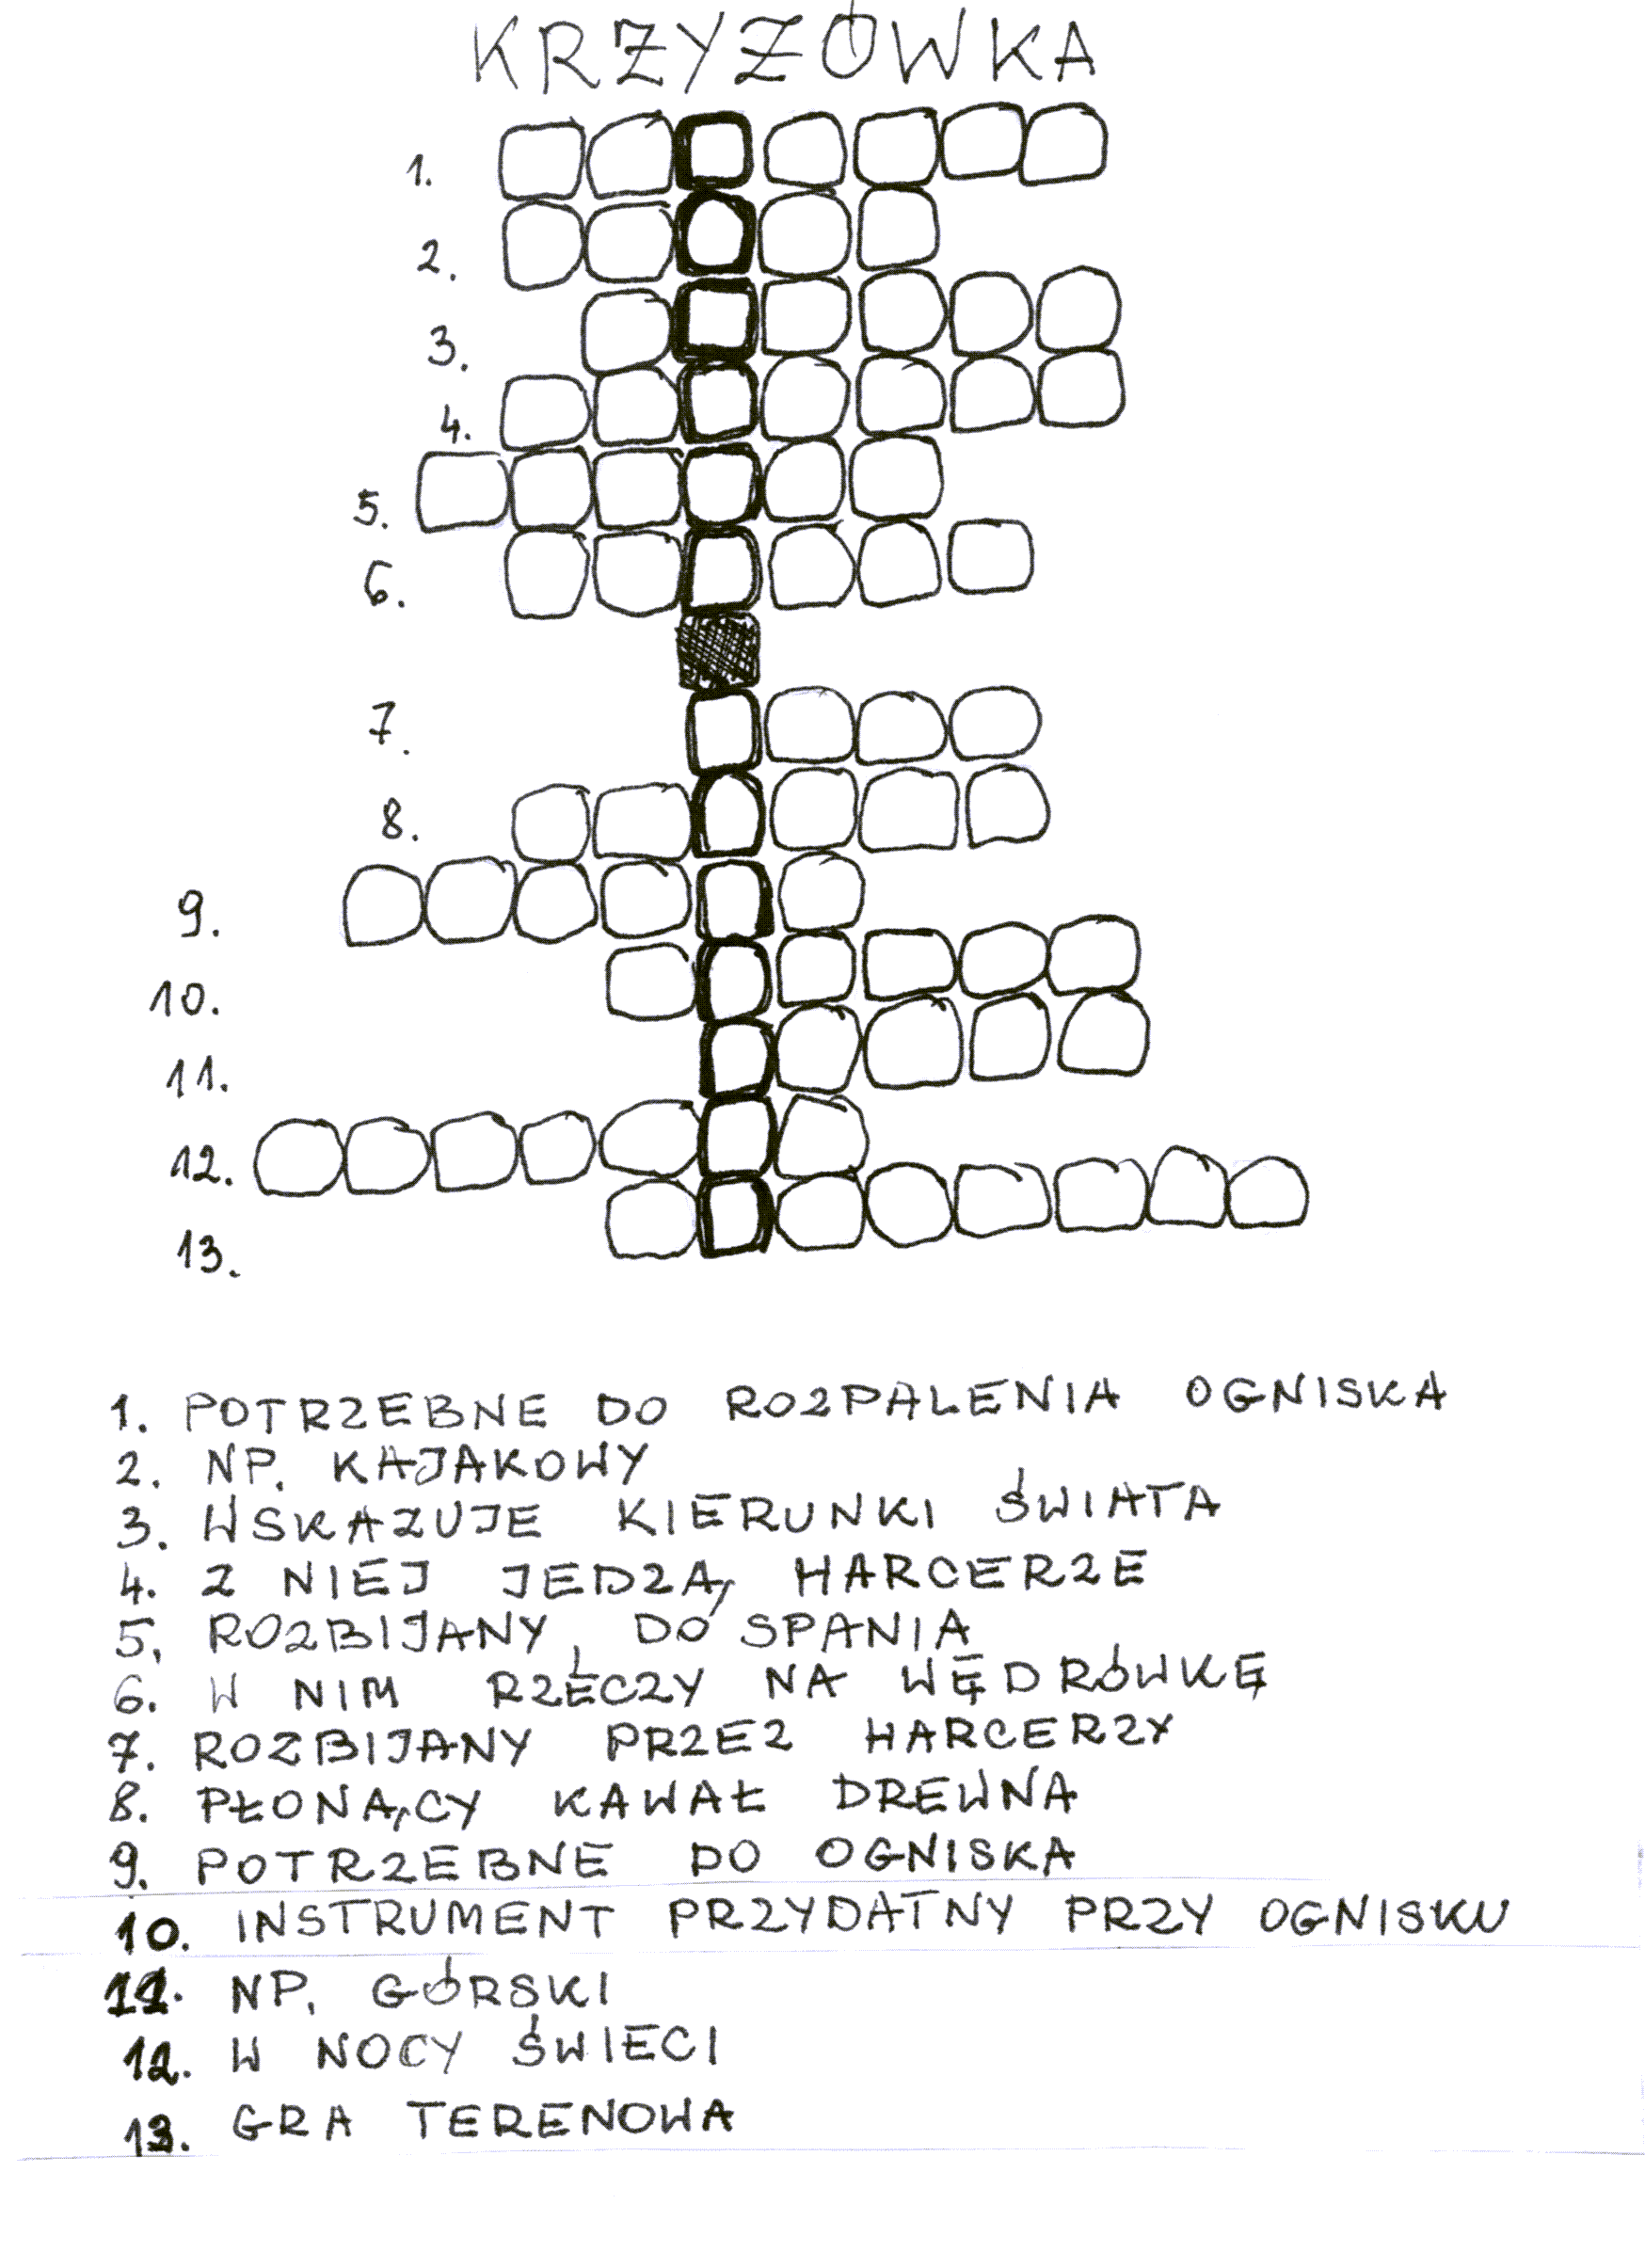 KRZYŻÓWKA
1.
2.
3.
4.
5.
6.
7.
8.
9.
10.
11.
12.
13.
1. POTRZEBNE DO ROZPALENIA OGNISKA
2. NP. KAJAKOWY
3. WSKAZUJE KIERUNKI ŚWIATA
4. Z NIEJ JEDZĄ HARCERZE
5. ROZBIJANY, DO SPANIA
6. W NIM RZECZY NA WĘDRÓWKĘ
7. ROZBIJANY PRZEZ HARCERZY
8. PŁONĄCY KAWAŁ DREWNA
9. POTRZEBNE DO OGNISKA
10. INSTRUMENT PRZYDATNY PRZY OGNISKU
11. NP. GÓRSKI
12. W NOCY ŚWIECI
13. GRA TERENOWA